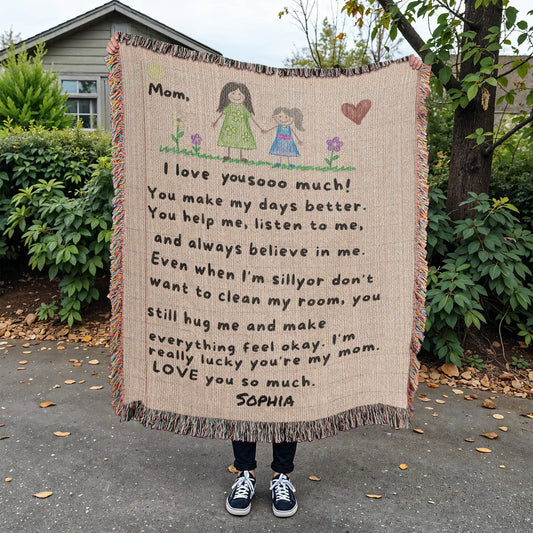 Mom,
I love yousooo much!
You make my days better.
You help me, listen to me,
and always believe in me.
Even when I'm sillyor don't
want to clean my room, you
still hug me and make
everything feel okay. I'm
really lucky you're my mom.
LOVE you so much.
SOPHIA